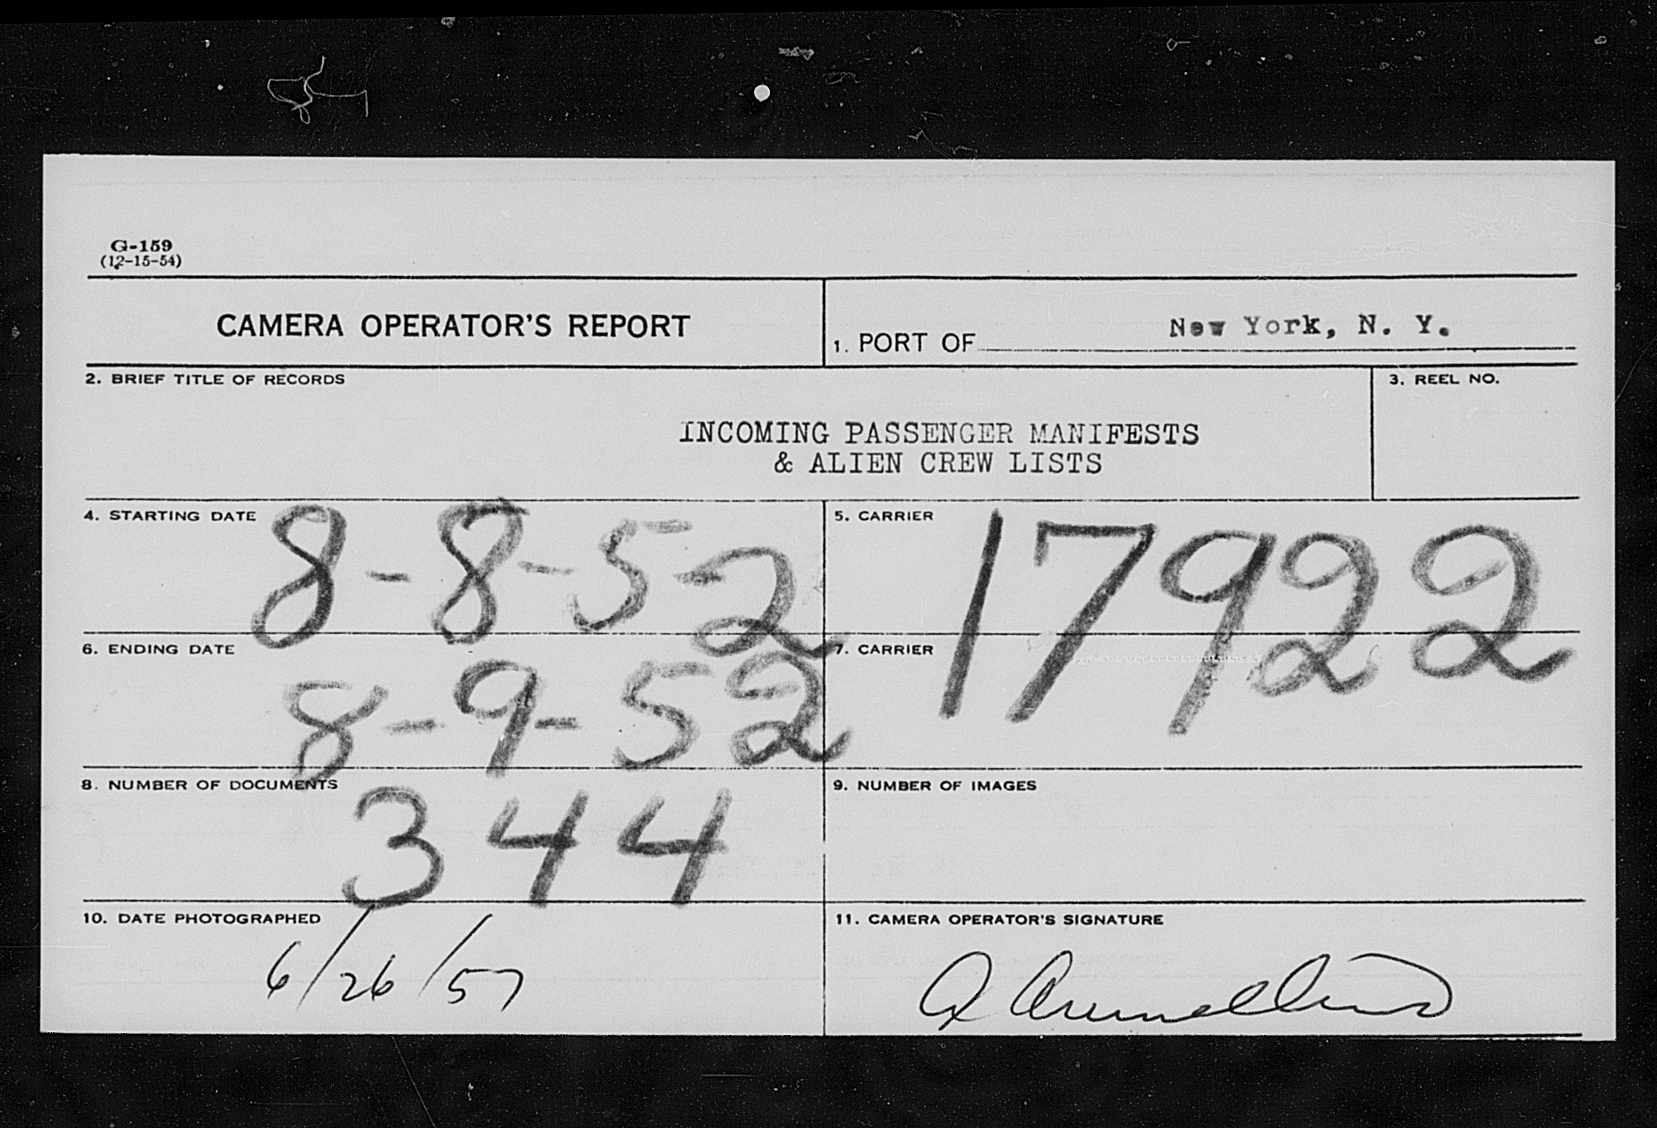 G-159
(12-15-54)
CAMERA OPERATOR'S REPORT
1. PORT OF New York, N. Y.
2. BRIEF TITLE OF RECORDS
3. REEL NO.
INCOMING PASSENGER MANIFESTS
& ALIEN CREW LISTS
4. STARTING DATE 8-8-52
5. CARRIER 17922
6. ENDING DATE 8-9-52
7. CARRIER
8. NUMBER OF DOCUMENTS 344
9. NUMBER OF IMAGES
10. DATE PHOTOGRAPHED
6/26/57
11. CAMERA OPERATOR'S SIGNATURE